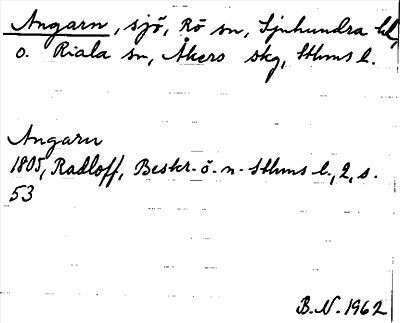 Angarn, sjö, Rö sn, Sjuhundra hd,
o. Riala sn, Åkers skg, Sthms l.
Angarn
1805, Radloff, Beskr. ö. n. Sthms l., 2, s.
53
B.N. 1962